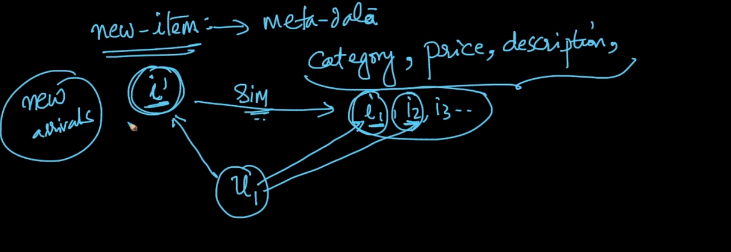 new-item: → meta-data
category, price, description,
new arrivals
i' sim → i1, i2, i3...
u1